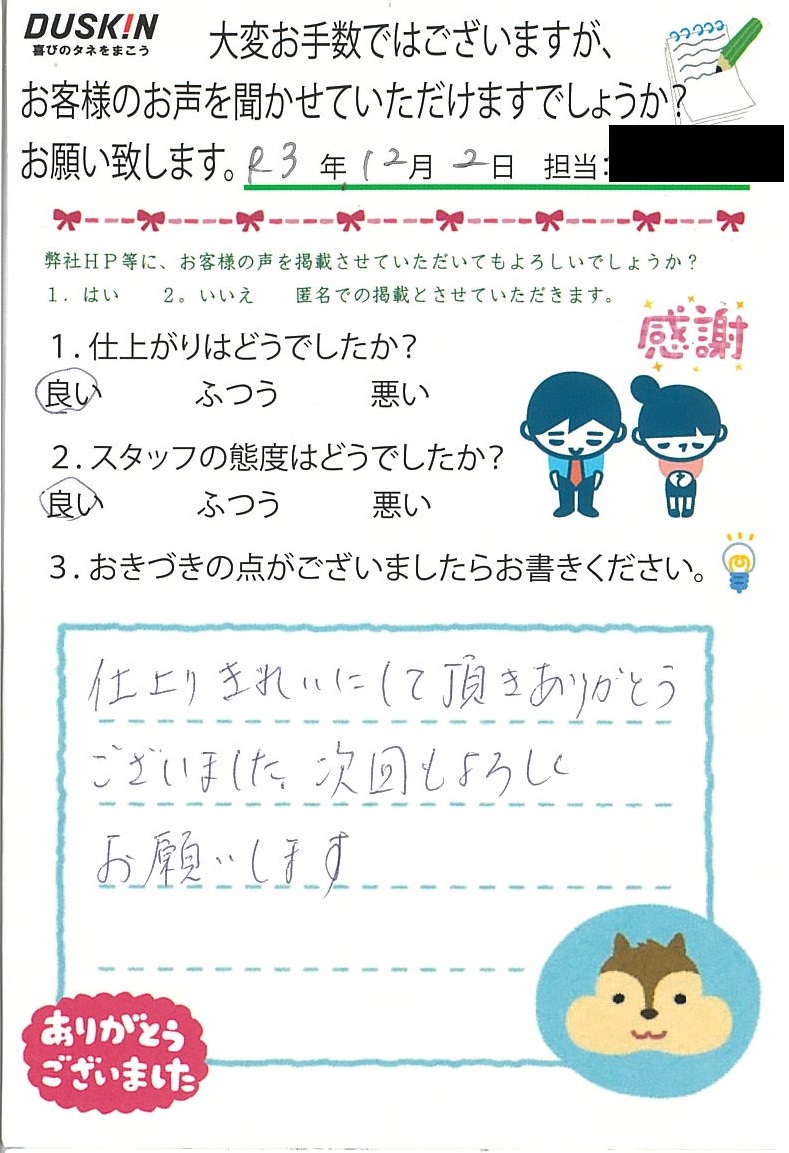 DUSKIN
喜びのタネをまこう
大変お手数ではございますが、
お客様のお声を聞かせていただけますでしょうか？
お願い致します。R3 年 12月 2日 担当：
弊社HP等に、お客様の声を掲載させていただいてもよろしいでしょうか？
1．はい 2。いいえ 匿名での掲載とさせていただきます。
感謝
1．仕上がりはどうでしたか？
良い ふつう 悪い
2．スタッフの態度はどうでしたか？
良い ふつう 悪い
3．おきづきの点がございましたらお書きください。
仕上りきれいにして頂きありがとう
ございました。次回もよろしく
お願いします
ありがとう
ございました